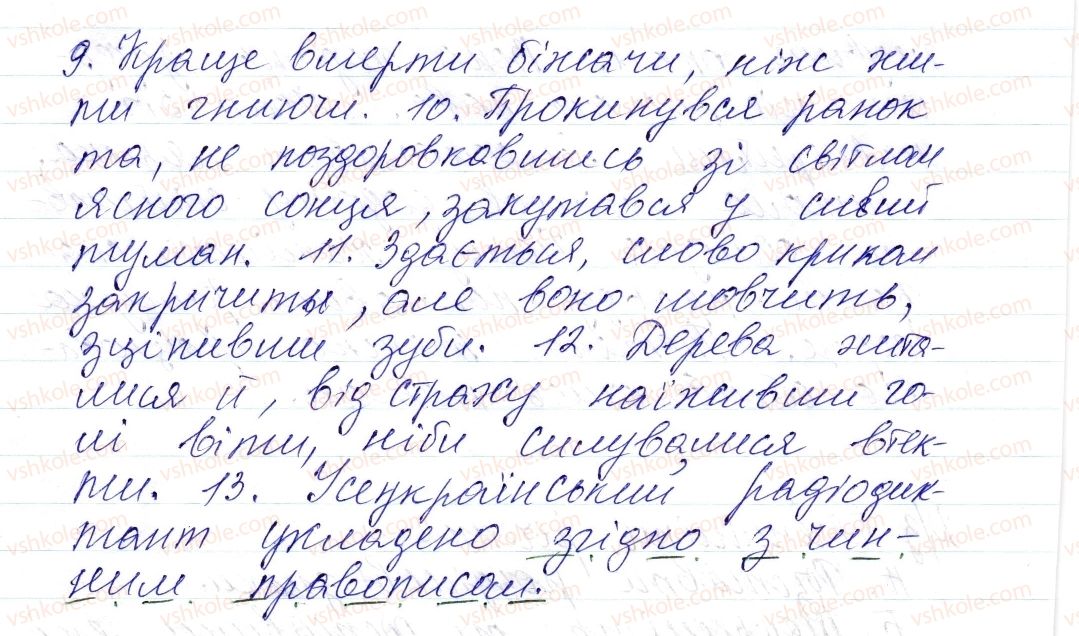 9. Краще вмерти біжачи, ніж жи-
ти гниючи. 10. Прокинувся ранок
та, не поздоровкавшись зі світлом
ясного сонця, закутався у сивий
туман. 11. Здається, слово криком
закричить, але воно мовчить,
зціпивши зуби. 12. Дерева хита-
лися й, від страху наїживши го-
лі віти, ніби силувалися втек-
ти. 13. Усеукраїнський радіодик-
тант укладено згідно з чин-
ним правописом.